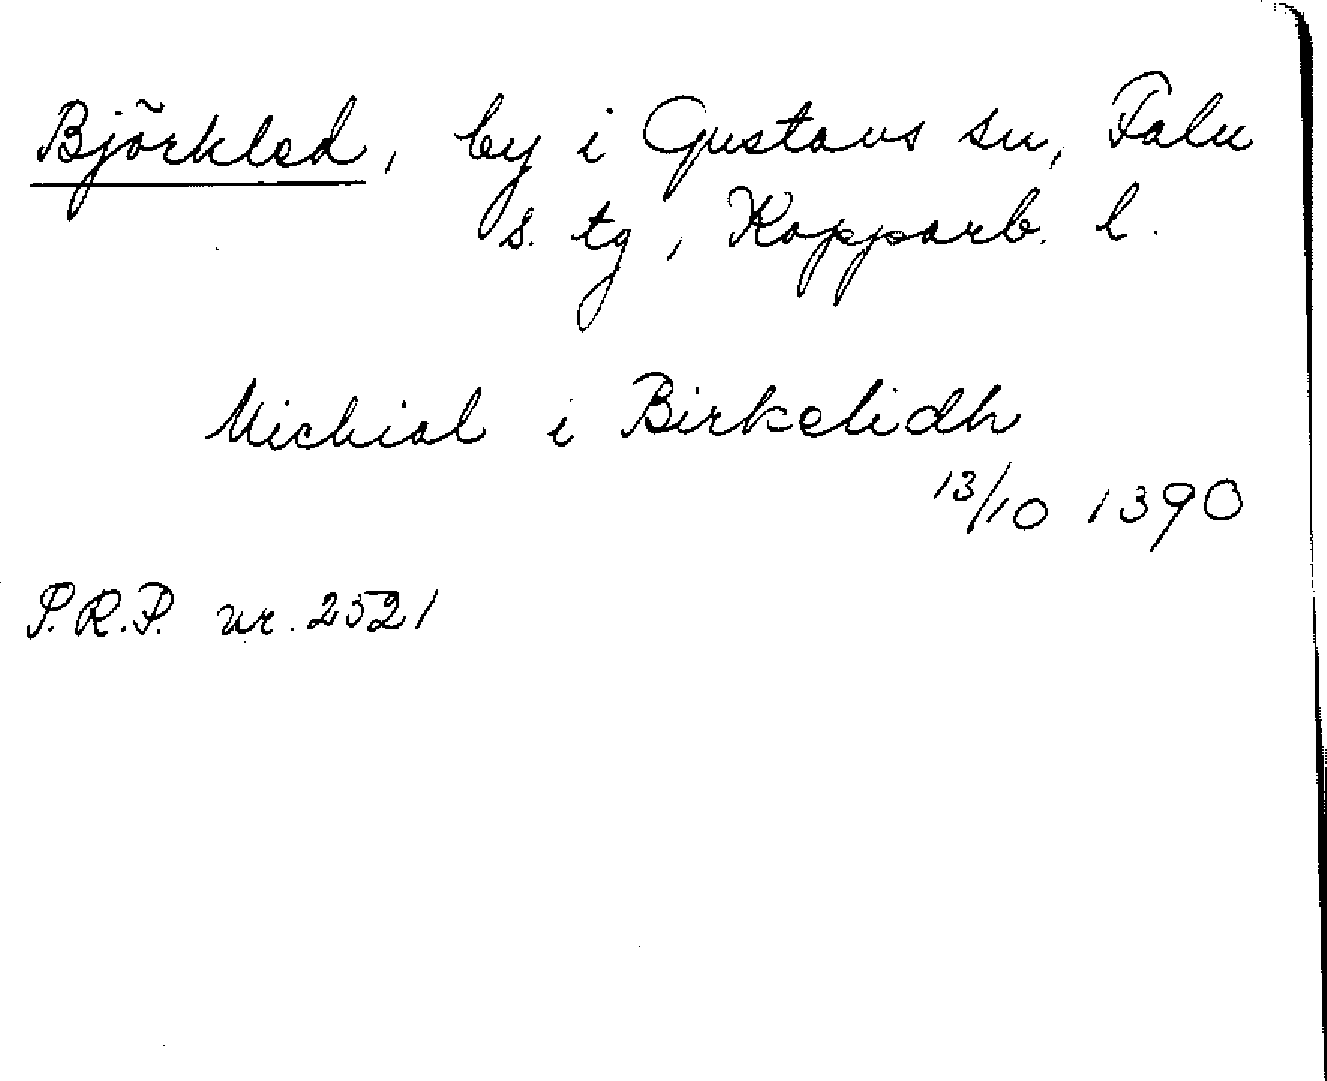 Björkled, by i Gustavs sn, Falu
s. tg, Kopparb. l.
Michial i Birkelidh
13/10 1390
P.R.P. nr. 2521